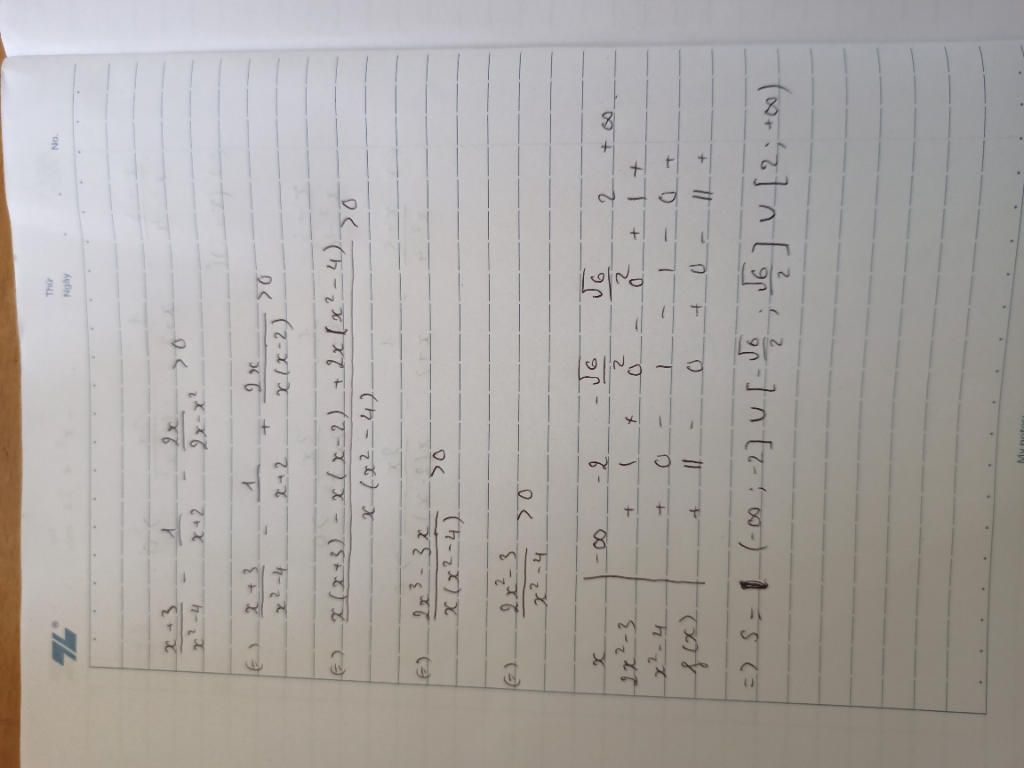 Thứ
Ngày
No.
x+3/x²-4 - 1/x+2 - 2x/2x-x² > 0
(=) x+3/x²-4 - 1/x+2 + 2x/x(x-2) > 0
(=) x(x+3) - x(x-2) + 2x(x²-4)/x(x²-4) > 0
(=) 2x³-3x/x(x²-4) > 0
(=) 2x²-3/x²-4 > 0
x | -∞ -2 -√6/2 √6/2 2 +∞
2x²-3 | + | + 0 - 0 + | +
x²-4 | + 0 - | - | - 0 +
f(x) | + || - 0 + 0 - || +
=) S = (-∞; -2] ∪ [-√6/2; √6/2] ∪ [2; +∞)